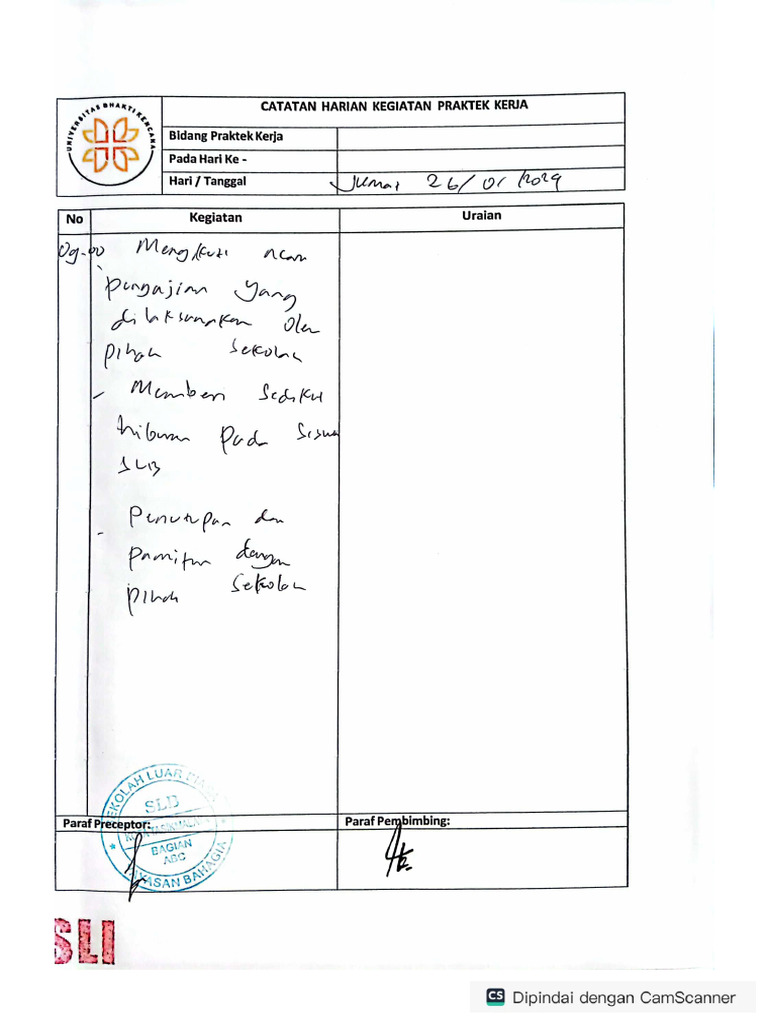 UNIVERSITAS BHAKTI KENCANA
CATATAN HARIAN KEGIATAN PRAKTEK KERJA
Bidang Praktek Kerja
Pada Hari Ke -
Hari / Tanggal Jumat 26/01/2024
No Kegiatan Uraian
09.00 Mengikuti acara
- pengajian yang
dilaksanakan oleh
pihak sekolah
- Memberi sedikit
hiburan pada siswa
SLB
- Penutupan dan
pamitan dengan
pihak sekolah
SEKOLAH LUAR BIASA
SLB
BAGIAN
ABC
YAYASAN BAHAGIA
Paraf Preceptor:
Paraf Pembimbing:
SLI
CS Dipindai dengan CamScanner